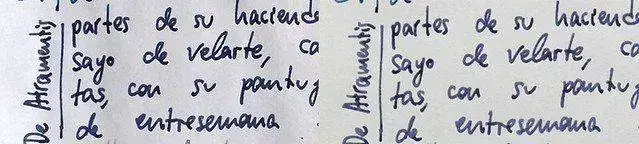 De Atramentis
partes de su haciend
sayo de velarte, ca
tas, con su pantuf
de entresemana
De Atramentis
partes de su haciend
sayo de velarte, co
tas, con su pantuf
de entresemana